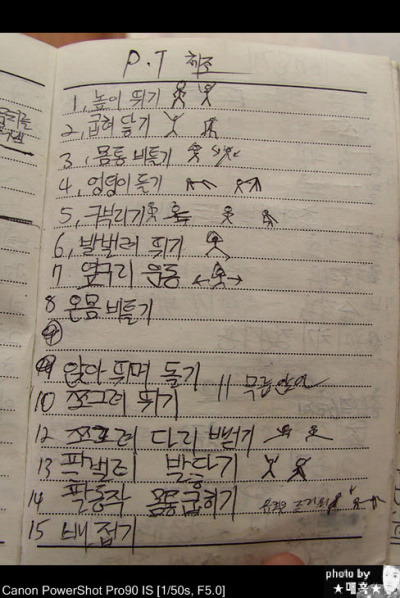 P.T 체조
1, 높이 뛰기
2, 굽혀 닿기
3, 몸통 비틀기
4, 엉덩이 들기
5, 구부리기
6, 발벌려 뛰기
7 옆구리 운동
8 온몸 비틀기
9
9 앉아 뛰며 돌기
11
10 쪼그려 뛰기
12 쪼그려 다리 벌리기
13 팔벌려 발닿기
14 팔동작 몸통굽히기
15 배 접기
Canon PowerShot Pro90 IS [1/50s, F5.0]
photo by
★매혹★